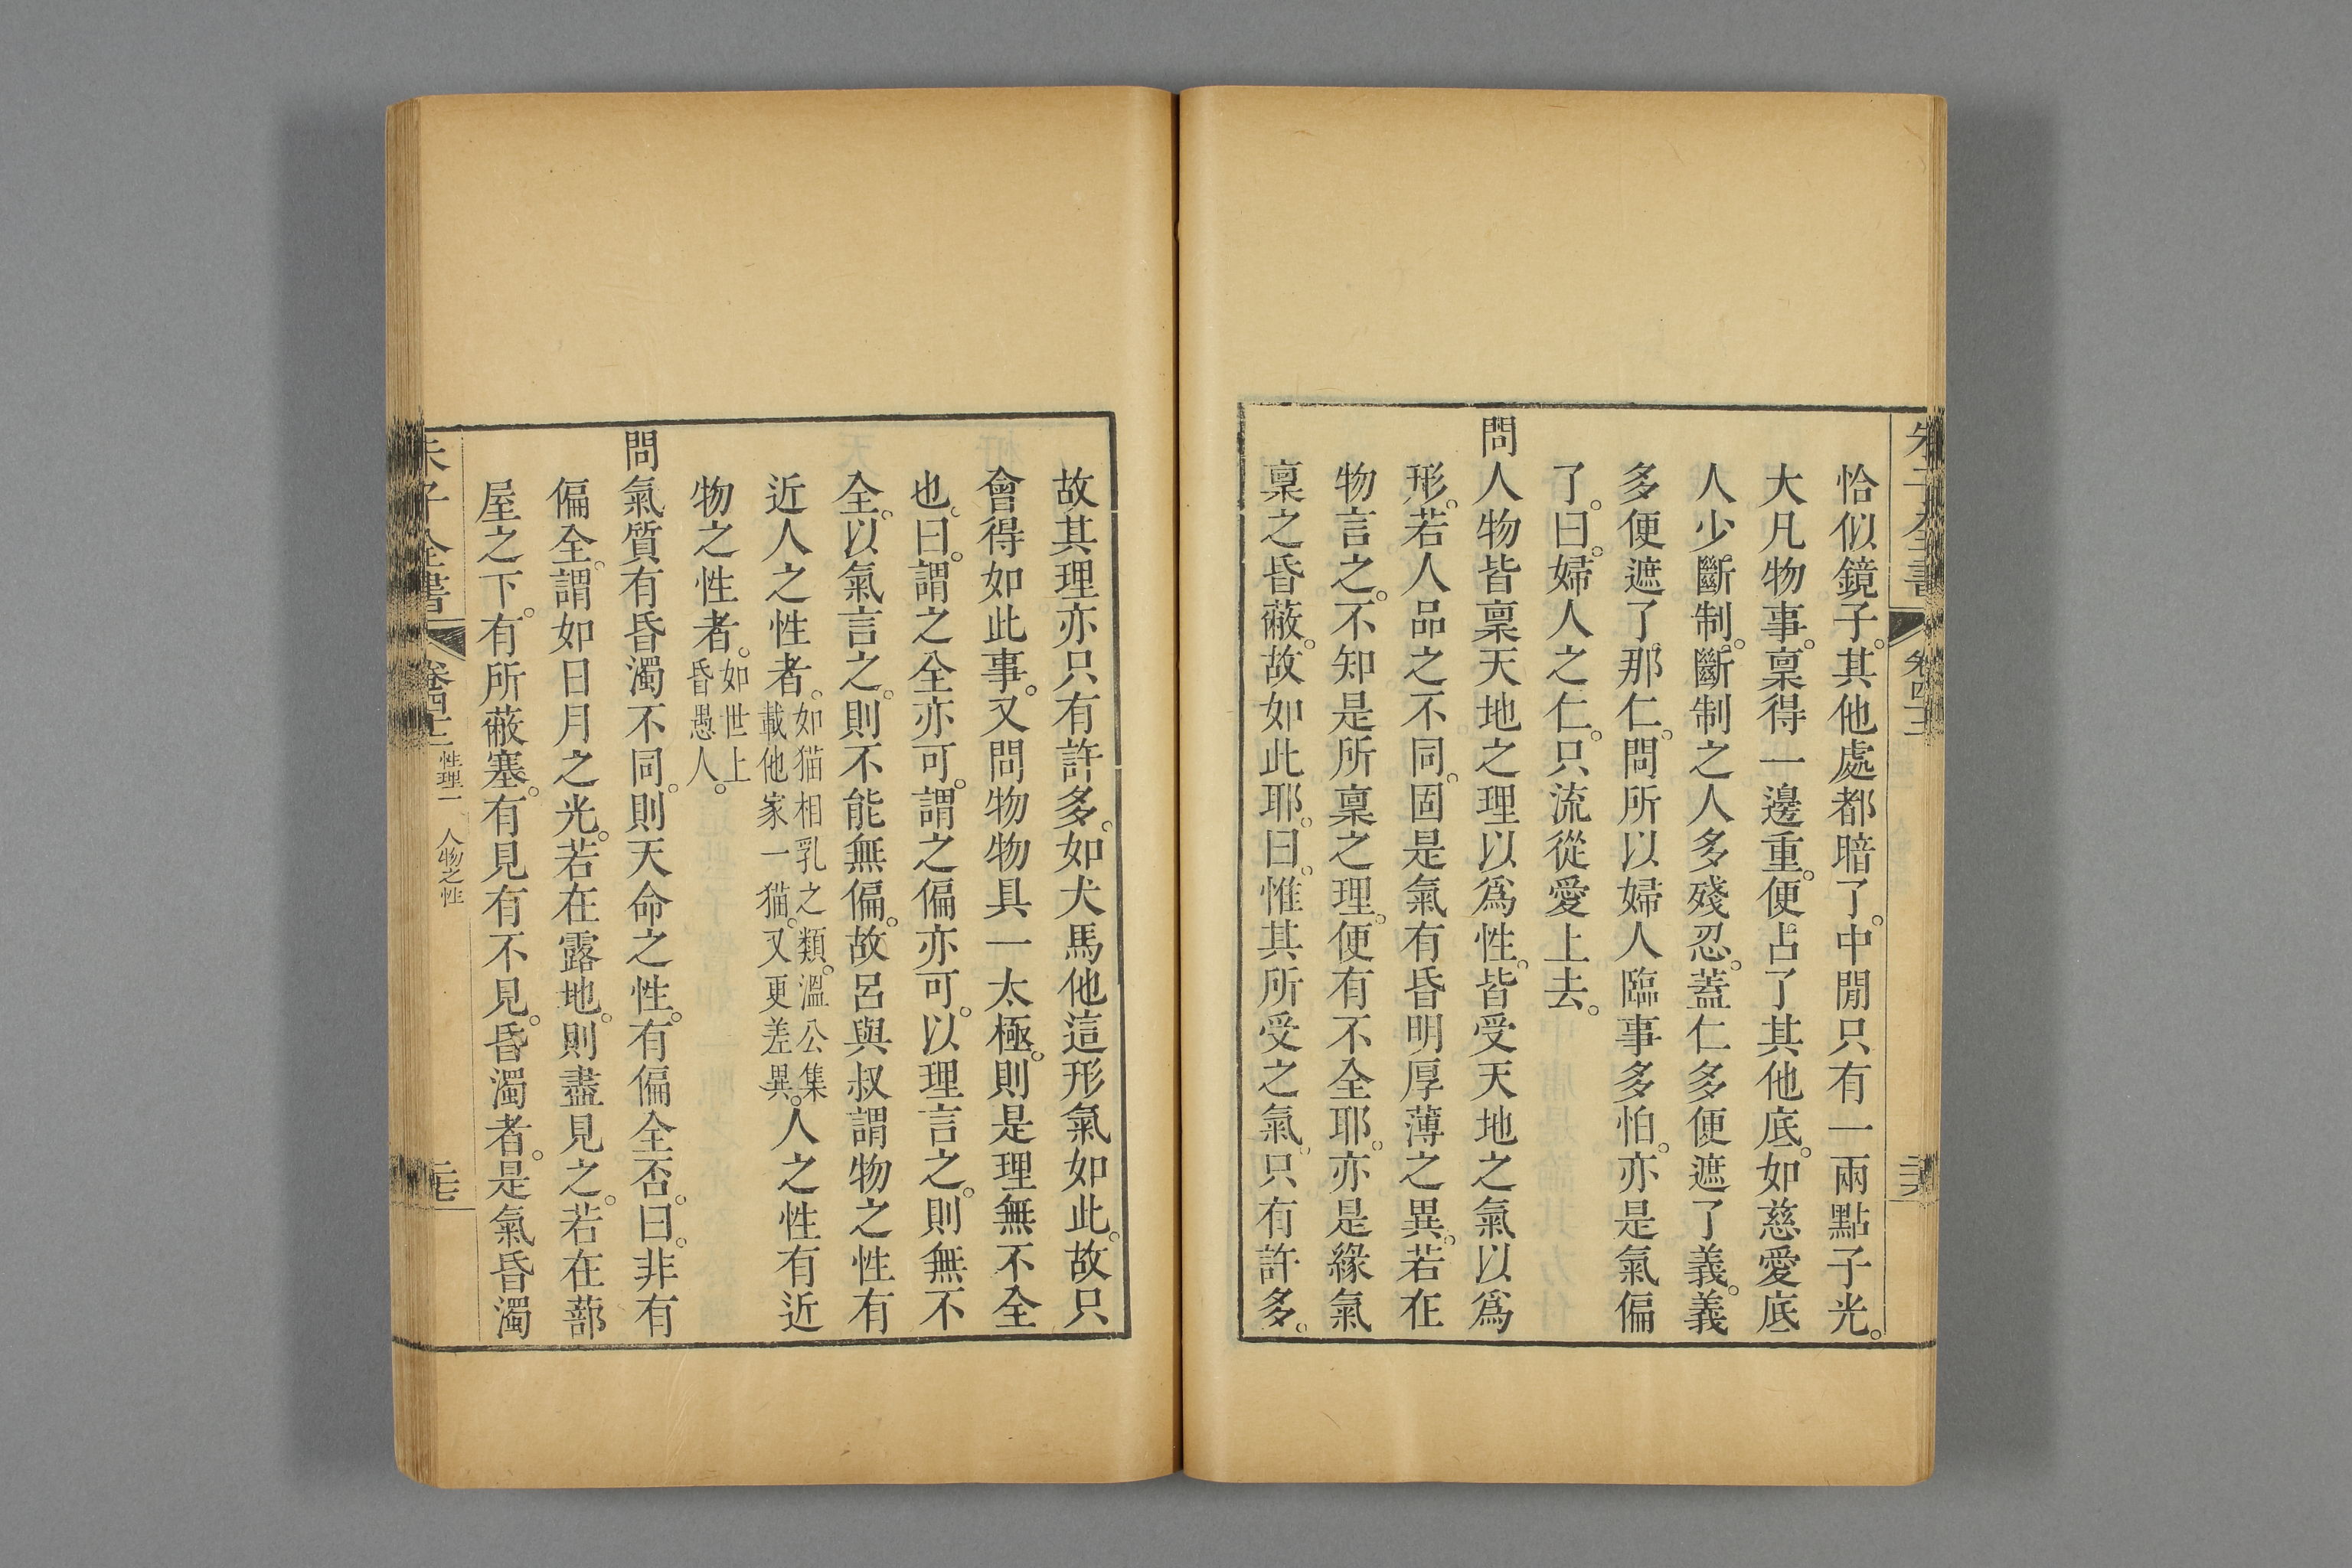 朱子全書 卷四十二
恰似鏡子。其他處都暗了。中閒只有一兩點子光。
大凡物事。稟得一邊重。便占了其他底。如慈愛底
人少斷制。斷制之人多殘忍。蓋仁多便遮了義。義
多便遮了那仁。問所以婦人臨事多怕。亦是氣偏
了。曰。婦人之仁。只流從愛上去。
問人物皆稟天地之理以爲性。皆受天地之氣以爲
形。若人品之不同。固是氣有昏明厚薄之異。若在
物言之。不知是所稟之理。便有不全耶。亦是緣氣
稟之昏蔽。故如此耶。曰。惟其所受之氣。只有許多。
故其理亦只有許多。如犬馬他這形氣如此。故只
會得如此事。又問物物具一太極。則是理無不全
也。曰。謂之全亦可。謂之偏亦可。以理言之。則無不
全。以氣言之。則不能無偏。故呂與叔謂物之性有
近人之性者。如猫相乳之類。溫公集載他家一猫。又更差異。人之性有近
物之性者。如世上昏愚人。
問氣質有昏濁不同。則天命之性。有偏全否。曰。非有
偏全。謂如日月之光。若在露地。則盡見之。若在蔀
屋之下。有所蔽塞。有見有不見。昏濁者。是氣昏濁
朱子全書 卷四十二 性理一 人物之性